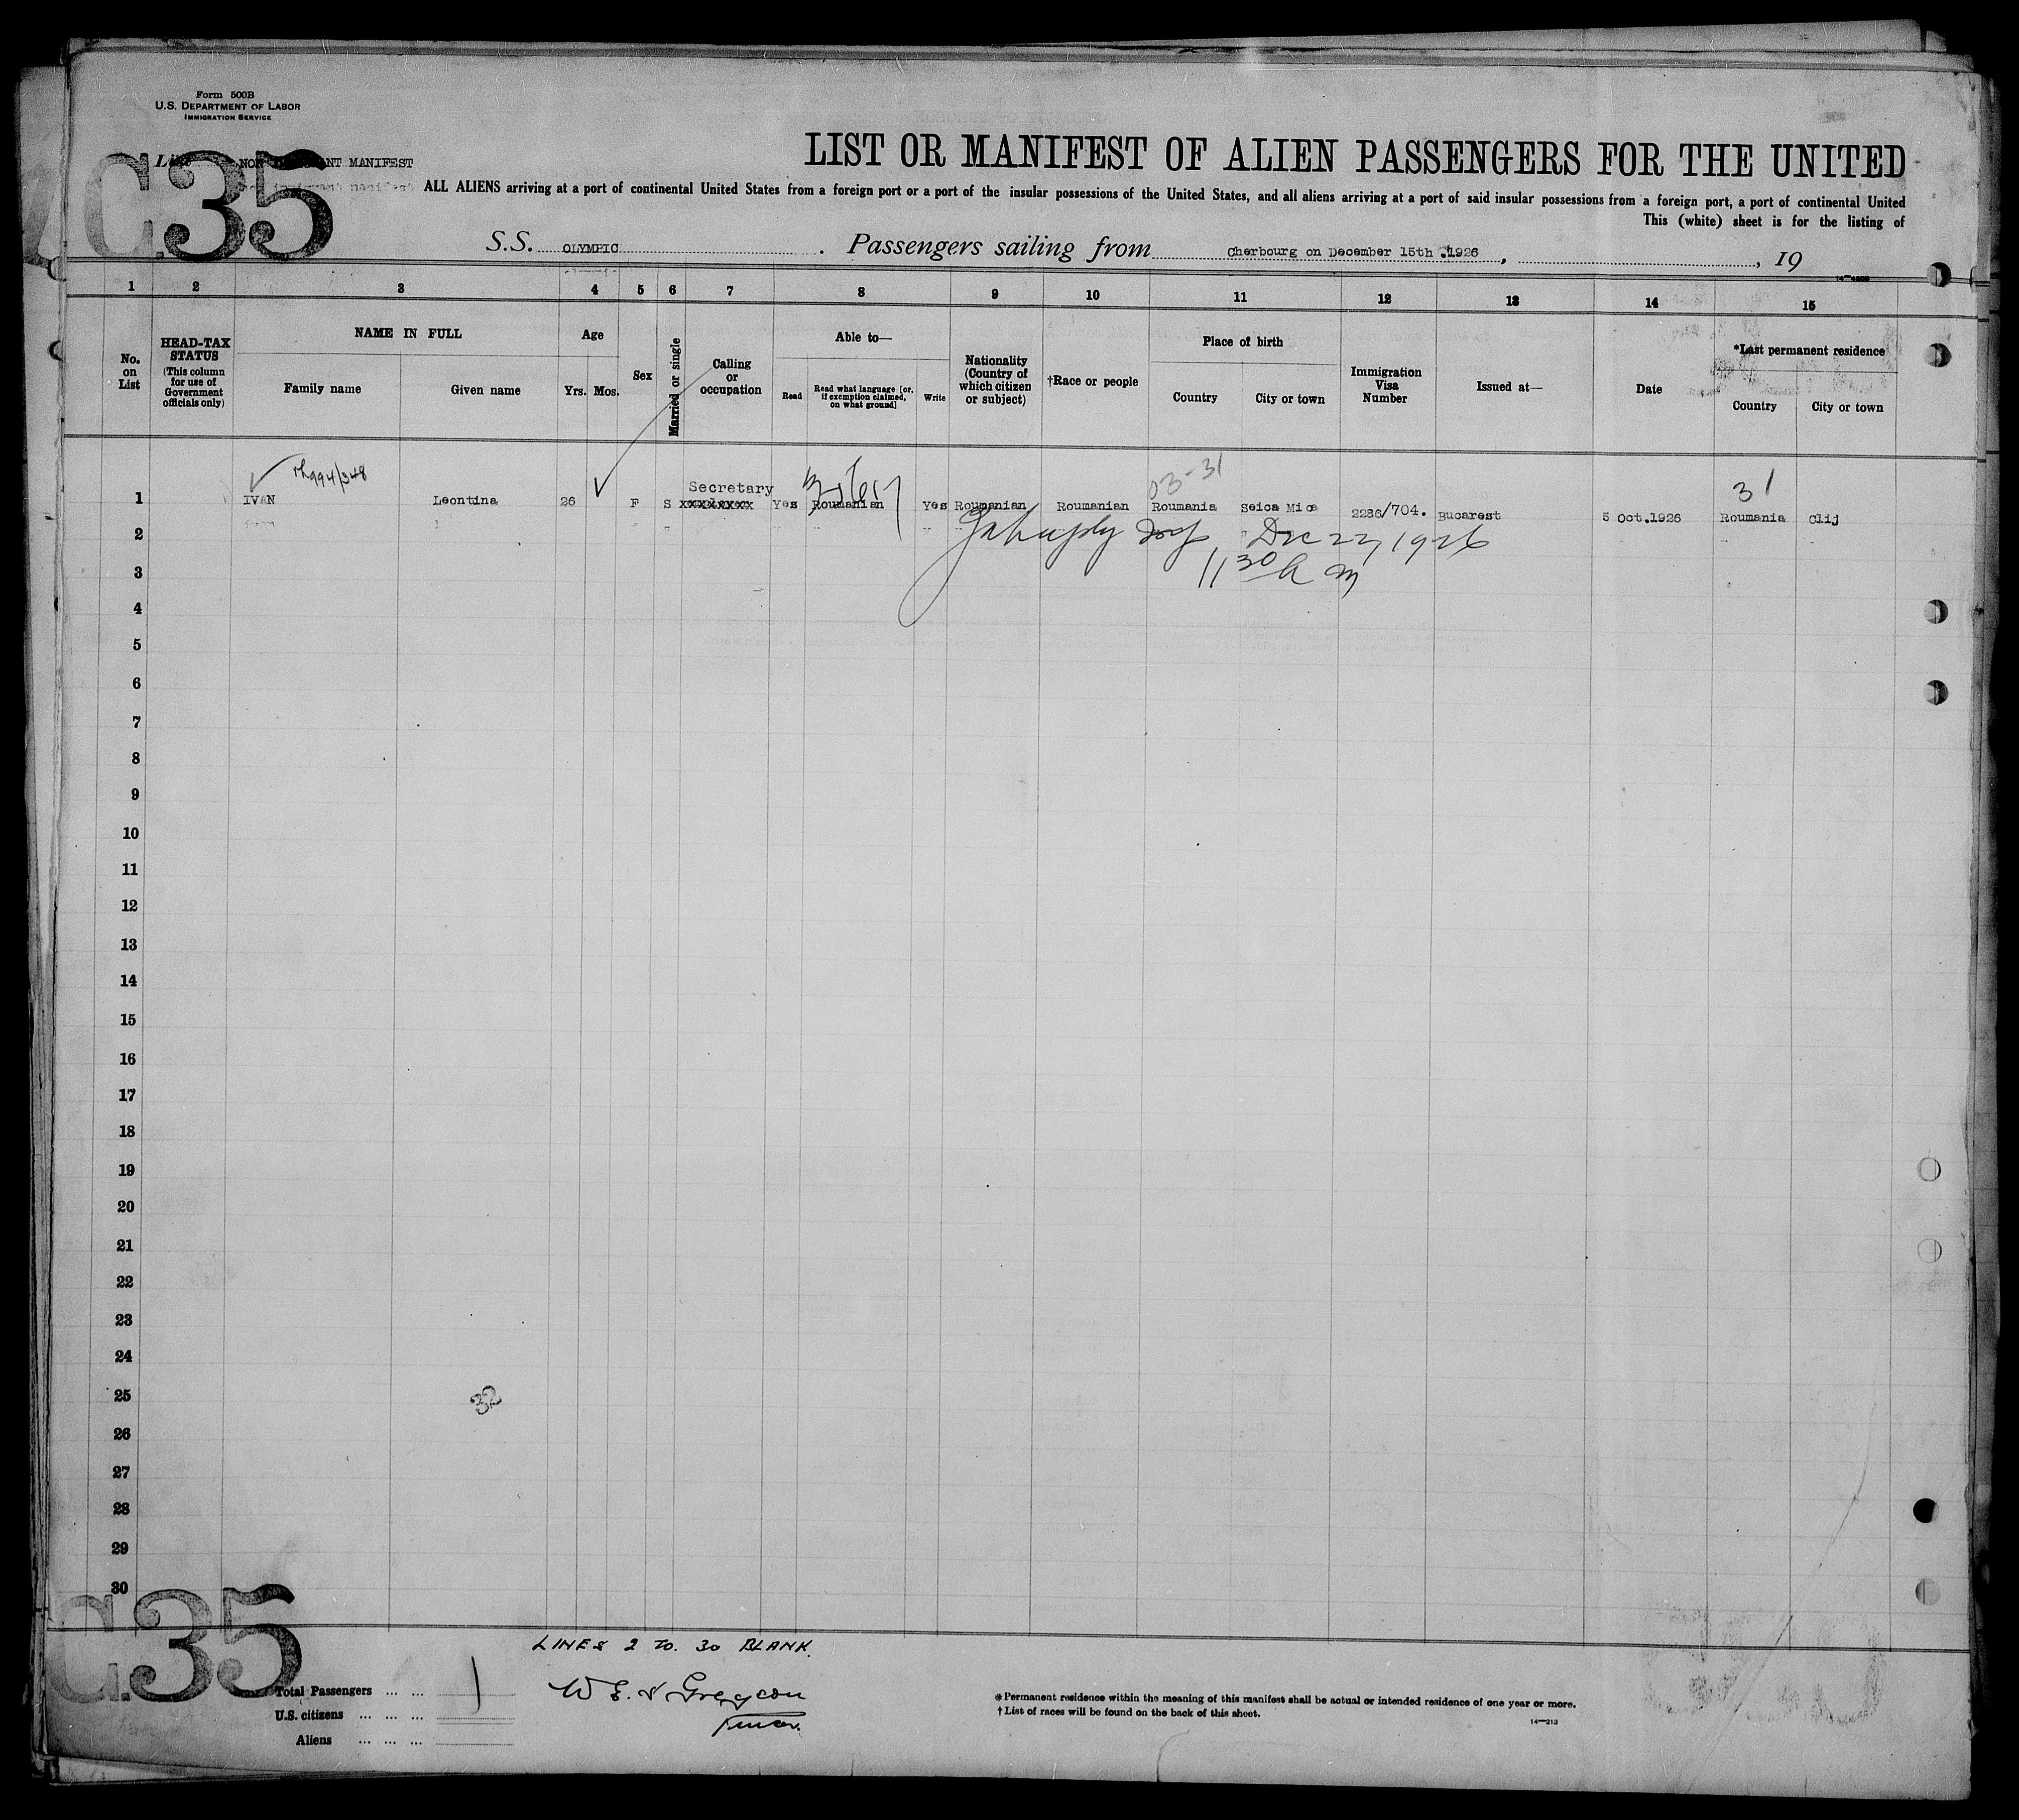 Form 500B
U.S. DEPARTMENT OF LABOR
IMMIGRATION SERVICE
LIST OR MANIFEST OF ALIEN PASSENGERS FOR THE UNITED
NON MANIFEST
35
ALL ALIENS arriving at a port of continental United States from a foreign port or a port of the insular possessions of the United States, and all aliens arriving at a port of said insular possessions from a foreign port, a port of continental United
This (white) sheet is for the listing of
S.S. OLYMPIC. Passengers sailing from Cherbourg on December 15th .1926, , 19
1 2 3 4 5 6 7 8 9 10 11 12 13 14 15
No. on List
HEAD-TAX STATUS (This column for use of Government officials only)
NAME IN FULL
Family name Given name
Age
Yrs. Mos.
Sex
Married or single
Calling or occupation
Able to—
Read
Read what language [or, if exemption claimed, on what ground]
Write
Nationality (Country of which citizen or subject)
†Race or people
Place of birth
Country City or town
Immigration Visa Number
Issued at—
Date
*Last permanent residence
Country City or town
994/348 03-31 31
Secretary
1 IVAN Leontina 26 F S xxxxxxxxx Yes Roumanian Yes Roumanian Roumanian Roumania Seica Mica 2286/704. Bucarest 5 Oct.1926 Roumania Clij
2 Dec 22, 1926
3 11 30 A M
4
5
6
7
8
9
10
11
12
13
14
15
16
17
18
19
20
21
22
23
24
25
32
26
27
28
29
30
35
LINES 2 TO. 30 BLANK.
Total Passengers ... ... 1
U.S. citizens ... ... ...
Aliens ... ... ...
*Permanent residence within the meaning of this manifest shall be actual or intended residence of one year or more.
†List of races will be found on the back of this sheet.
14—213